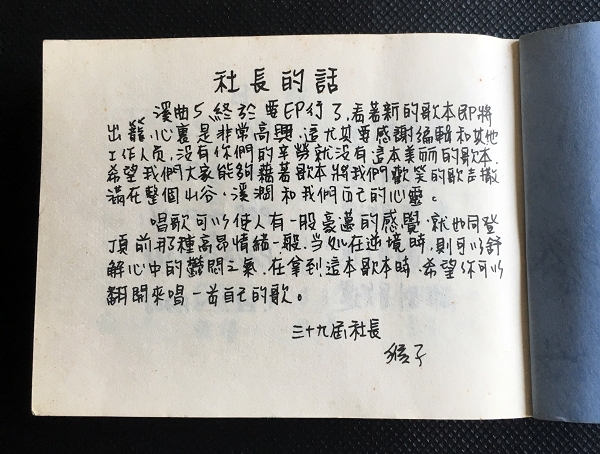 社長的話
溪曲5終於要印行了,看著新的歌本即將
出籠,心裏是非常高興,這尤其要感謝編輯和其他
工作人員,沒有你們的辛勞就沒有這本美丽的歌本.
希望我們大家能夠藉著歌本將我們歡笑的歌声撒
滿在整個山谷、溪澗和我們自己的心靈。
唱歌可以使人有一股豪邁的感覺,就如同登
頂前那種高昂情緒一般.当处在逆境時,則可以舒
解心中的鬱悶之氣,在拿到這本歌本時,希望你可以
翻開來唱一首自己的歌。
三十九屆社長
猴子